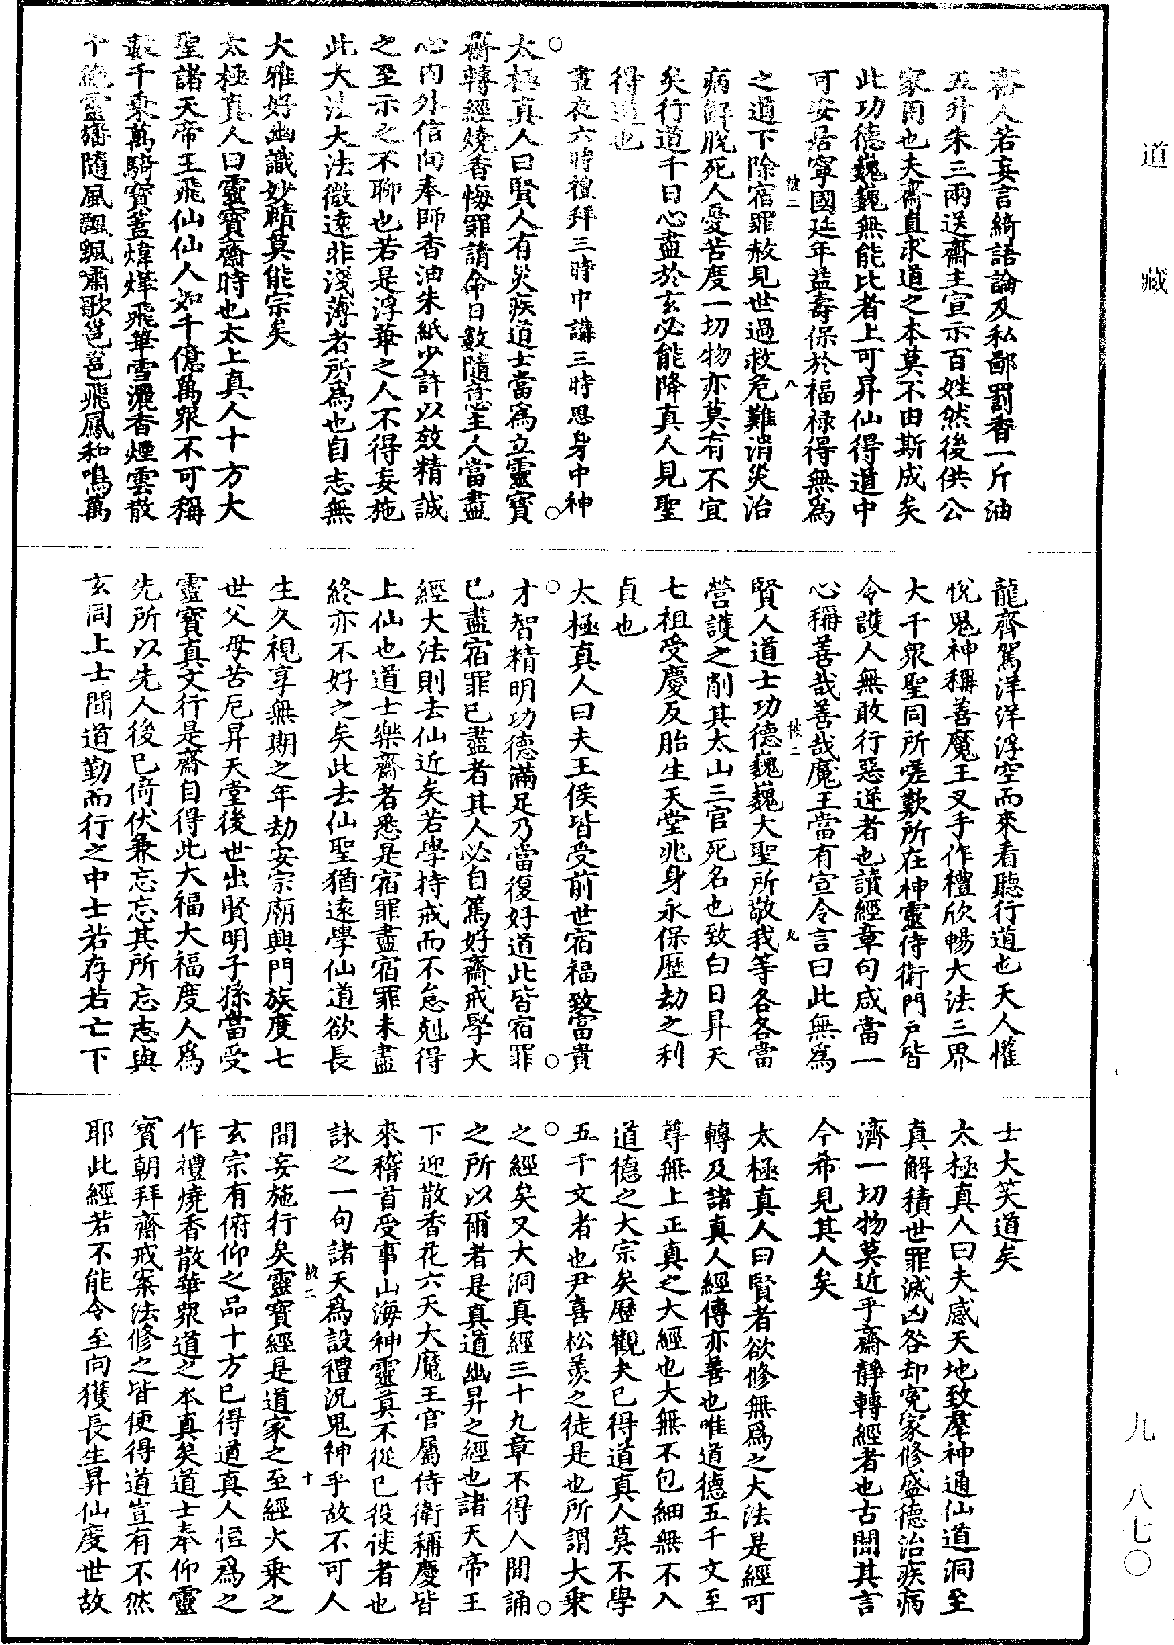 道藏
齋人若妄言綺語論及私鄙罰香一斤油
五升朱三兩送齋主宣示百姓然後供公
家用也夫齋直求道之本莫不由斯成矣
此功德巍巍無能比者上可昇仙得道中
可安居寧國延年益壽保於福祿得無為
被二
八
之道下除宿罪赦見世過救危難消災治
病解脫死人憂苦度一切物亦莫有不宜
矣行道千日心盡於玄必能降真人見聖
得道也
晝夜六時禮拜三時中講三時思身中神
太極真人曰賢人有災疾道士當為立靈寶
齋轉經燒香悔罪請命日數隨意主人當盡
心內外信向奉師香油朱紙少許以效精誠
之至示之不聊也若是浮華之人不得妄施
此大法大法微遠非淺薄者所為也自志無
大雅好幽識妙賾莫能宗矣
太極真人曰靈寶齋時也太上真人十方大
聖諸天帝王飛仙仙人如千億萬眾不可稱
載千乘萬騎寶蓋煒燁飛華雪灑香煙雲散
十絕靈旛隨風飄颻嘯歌邕邕飛鳳和鳴萬
龍齊駕洋洋浮空而來看聽行道也天人懽
悅鬼神稱善魔王叉手作禮欣暢大法三界
大千眾聖同所嗟歎所在神靈侍衛門戶皆
令護人無敢行惡逆者也讀經章句咸當一
心稱善哉善哉魔王當有宣令言曰此無為
被二
九
賢人道士功德巍巍大聖所敬我等各各當
營護之削其太山三官死名也致白日昇天
七祖受慶反胎生天堂兆身永保歷劫之利
貞也
太極真人曰夫王侯皆受前世宿福致富貴
才智精明功德滿足乃當復好道此皆宿罪
已盡宿罪已盡者其人必自篤好齋戒學大
經大法則去仙近矣若學持戒而不怠剋得
上仙也道士樂齋者悉是宿罪盡宿罪未盡
終亦不好之矣此去仙聖猶遠學仙道欲長
生久視享無期之年劫安宗廟興門族度七
世父母苦厄昇天堂後世出賢明子孫當受
靈寶真文行是齋自得此大福大福度人為
先所以先人後已倚伏兼忘忘其所忘志與
玄同上士聞道勤而行之中士若存若亡下
士大笑道矣
太極真人曰夫感天地致羣神通仙道洞至
真解積世罪滅凶咎却冤家修盛德治疾病
濟一切物莫近乎齋靜轉經者也古聞其言
今希見其人矣
太極真人曰賢者欲修無為之大法是經可
轉及諸真人經傳亦善也唯道德五千文至
尊無上正真之大經也大無不包細無不入
道德之大宗矣歷觀夫已得道真人莫不學
五千文者也尹喜松羨之徒是也所謂大乘
之經矣又大洞真經三十九章不得人間誦
之所以爾者是真道幽昇之經也諸天帝王
下迎散香花六天大魔王官屬侍衛稱慶皆
來稽首受事山海神靈莫不從已役使者也
詠之一句諸天為設禮況鬼神乎故不可人
被二
十
間妄施行矣靈寶經是道家之至經大乘之
玄宗有俯仰之品十方已得道真人恒為之
作禮燒香散華眾道之本真矣道士奉仰靈
寶朝拜齋戒案法修之皆便得道豈有不然
耶此經若不能令至向獲長生昇仙度世故
九 八七〇